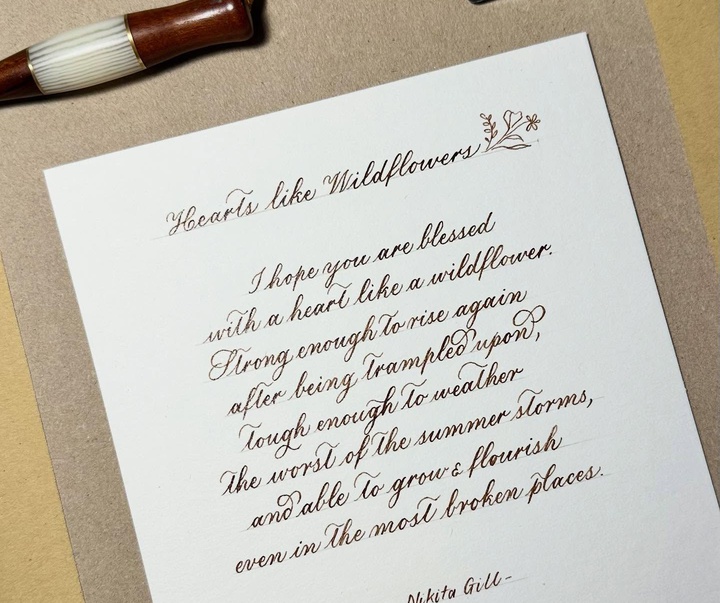 Hearts like Wildflowers
I hope you are blessed
with a heart like a wildflower.
Strong enough to rise again
after being trampled upon,
tough enough to weather
the worst of the summer storms,
and able to grow & flourish
even in the most broken places.
Nikita Gill-